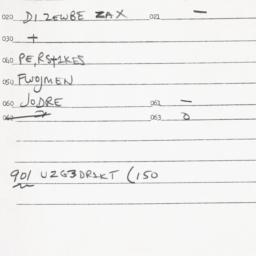 020 DIZEWBE ZAX 021 —
030 +
040 PE,RS41KES
050 FWOJMEN
060 JODRE 062 —
063 0
901 U2G3DR1KT (150